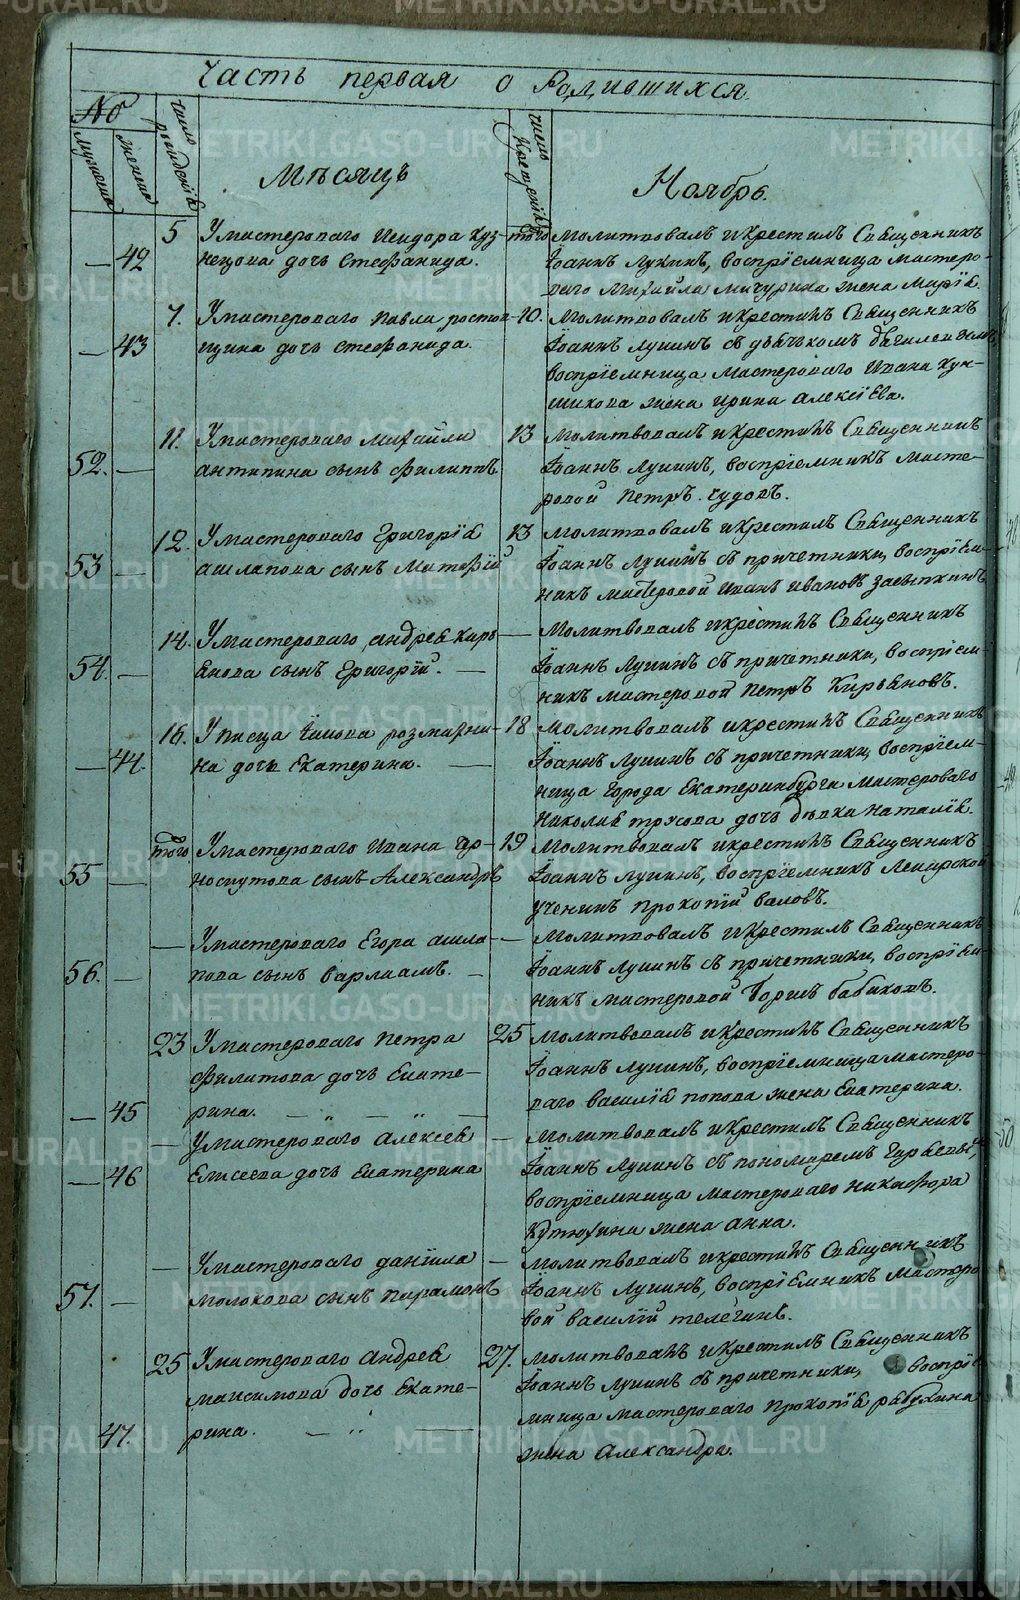 Часть первая о Родившихся.
№
Мужеска
Женска
число рождения
Мѣсяцъ
число Крещения
Ноябрь.
42
5
У мастероваго Исидора Куз-
нецова дочь Стефанида.
того
Молитвовалъ и крестилъ Священникъ
Іоаннъ Лунинъ, воспріемница мастеро-
ваго Михайла Мичурина жена Марія.
43
7.
У мастероваго Павла Растор-
гуина дочь Стефанида.
10.
Молитвовалъ и крестилъ Священникъ
Іоаннъ Лунинъ съ дьячкомъ
воспріемница мастероваго Ивана Кун-
шикова жена Ирина Алексіева.
52.
11.
У мастероваго Михайла
Антипина сынъ Филиппъ
13
Молитвовалъ и крестилъ Священникъ
Іоаннъ Лунинъ, воспріемникъ масте-
ровой Петръ Чудовъ.
53
12.
У мастероваго Григорія
Ашлапова сынъ Матфій
13
Молитвовалъ и крестилъ Священникъ
Іоаннъ Лунинъ съ причетники, воспріем-
никъ мастеровой Иванъ Ивановъ Засыпкинъ
54.
14.
У мастероваго Андрея Кирь-
янова сынъ Григорій.
Молитвовалъ и крестилъ Священникъ
Іоаннъ Лунинъ съ причетники, воспріем-
никъ мастеровой Петръ Кирьяновъ.
44.
16.
У писца Іакова Розмахни-
на дочь Екатерина.
18
Молитвовалъ и крестилъ Священникъ
Іоаннъ Лунинъ съ причетники, воспріем-
ница города Екатеринбурга мастероваго
Николая Трусова дочь дѣвка Наталія.
55
того
У мастероваго Ивана Чр-
носкутова сынъ Александръ
19
Молитвовалъ и крестилъ Священникъ
Іоаннъ Лунинъ, воспріемникъ Лекарской
ученикъ Прокопій Валовъ.
56.
У мастероваго Егора Ашла-
пова сынъ Варлаамъ.
Молитвовалъ и крестилъ Священникъ
Іоаннъ Лунинъ съ причетники, воспріем-
никъ мастеровой Борисъ Бабиковъ.
45
23
У мастероваго Петра
Филатова дочь Екате-
рина.
25
Молитвовалъ и крестилъ Священникъ
Іоаннъ Лунинъ, воспріемница мастеро-
ваго Василія Попова жена Екатерина.
46
У мастероваго Алексея
Елисеева дочь Екатерина
Молитвовалъ и крестилъ Священникъ
Іоаннъ Лунинъ съ пономаремъ
воспріемница мастероваго Никифора
Кутюхина жена Анна.
57.
У мастероваго Даніила
Молокова сынъ Парамонъ
Молитвовалъ и крестилъ Священникъ
Іоаннъ Лунинъ, воспріемникъ мастеро
вой Василій Телегинъ.
47.
25
У мастероваго Андрея
Максимова дочь Екате-
рина.
27.
Молитвовалъ и крестилъ Священникъ
Іоаннъ Лунинъ съ причетники, воспріе
мница мастероваго Прокопія Рябухина
жена Александра.
METRIKI.GASO-URAL.RU